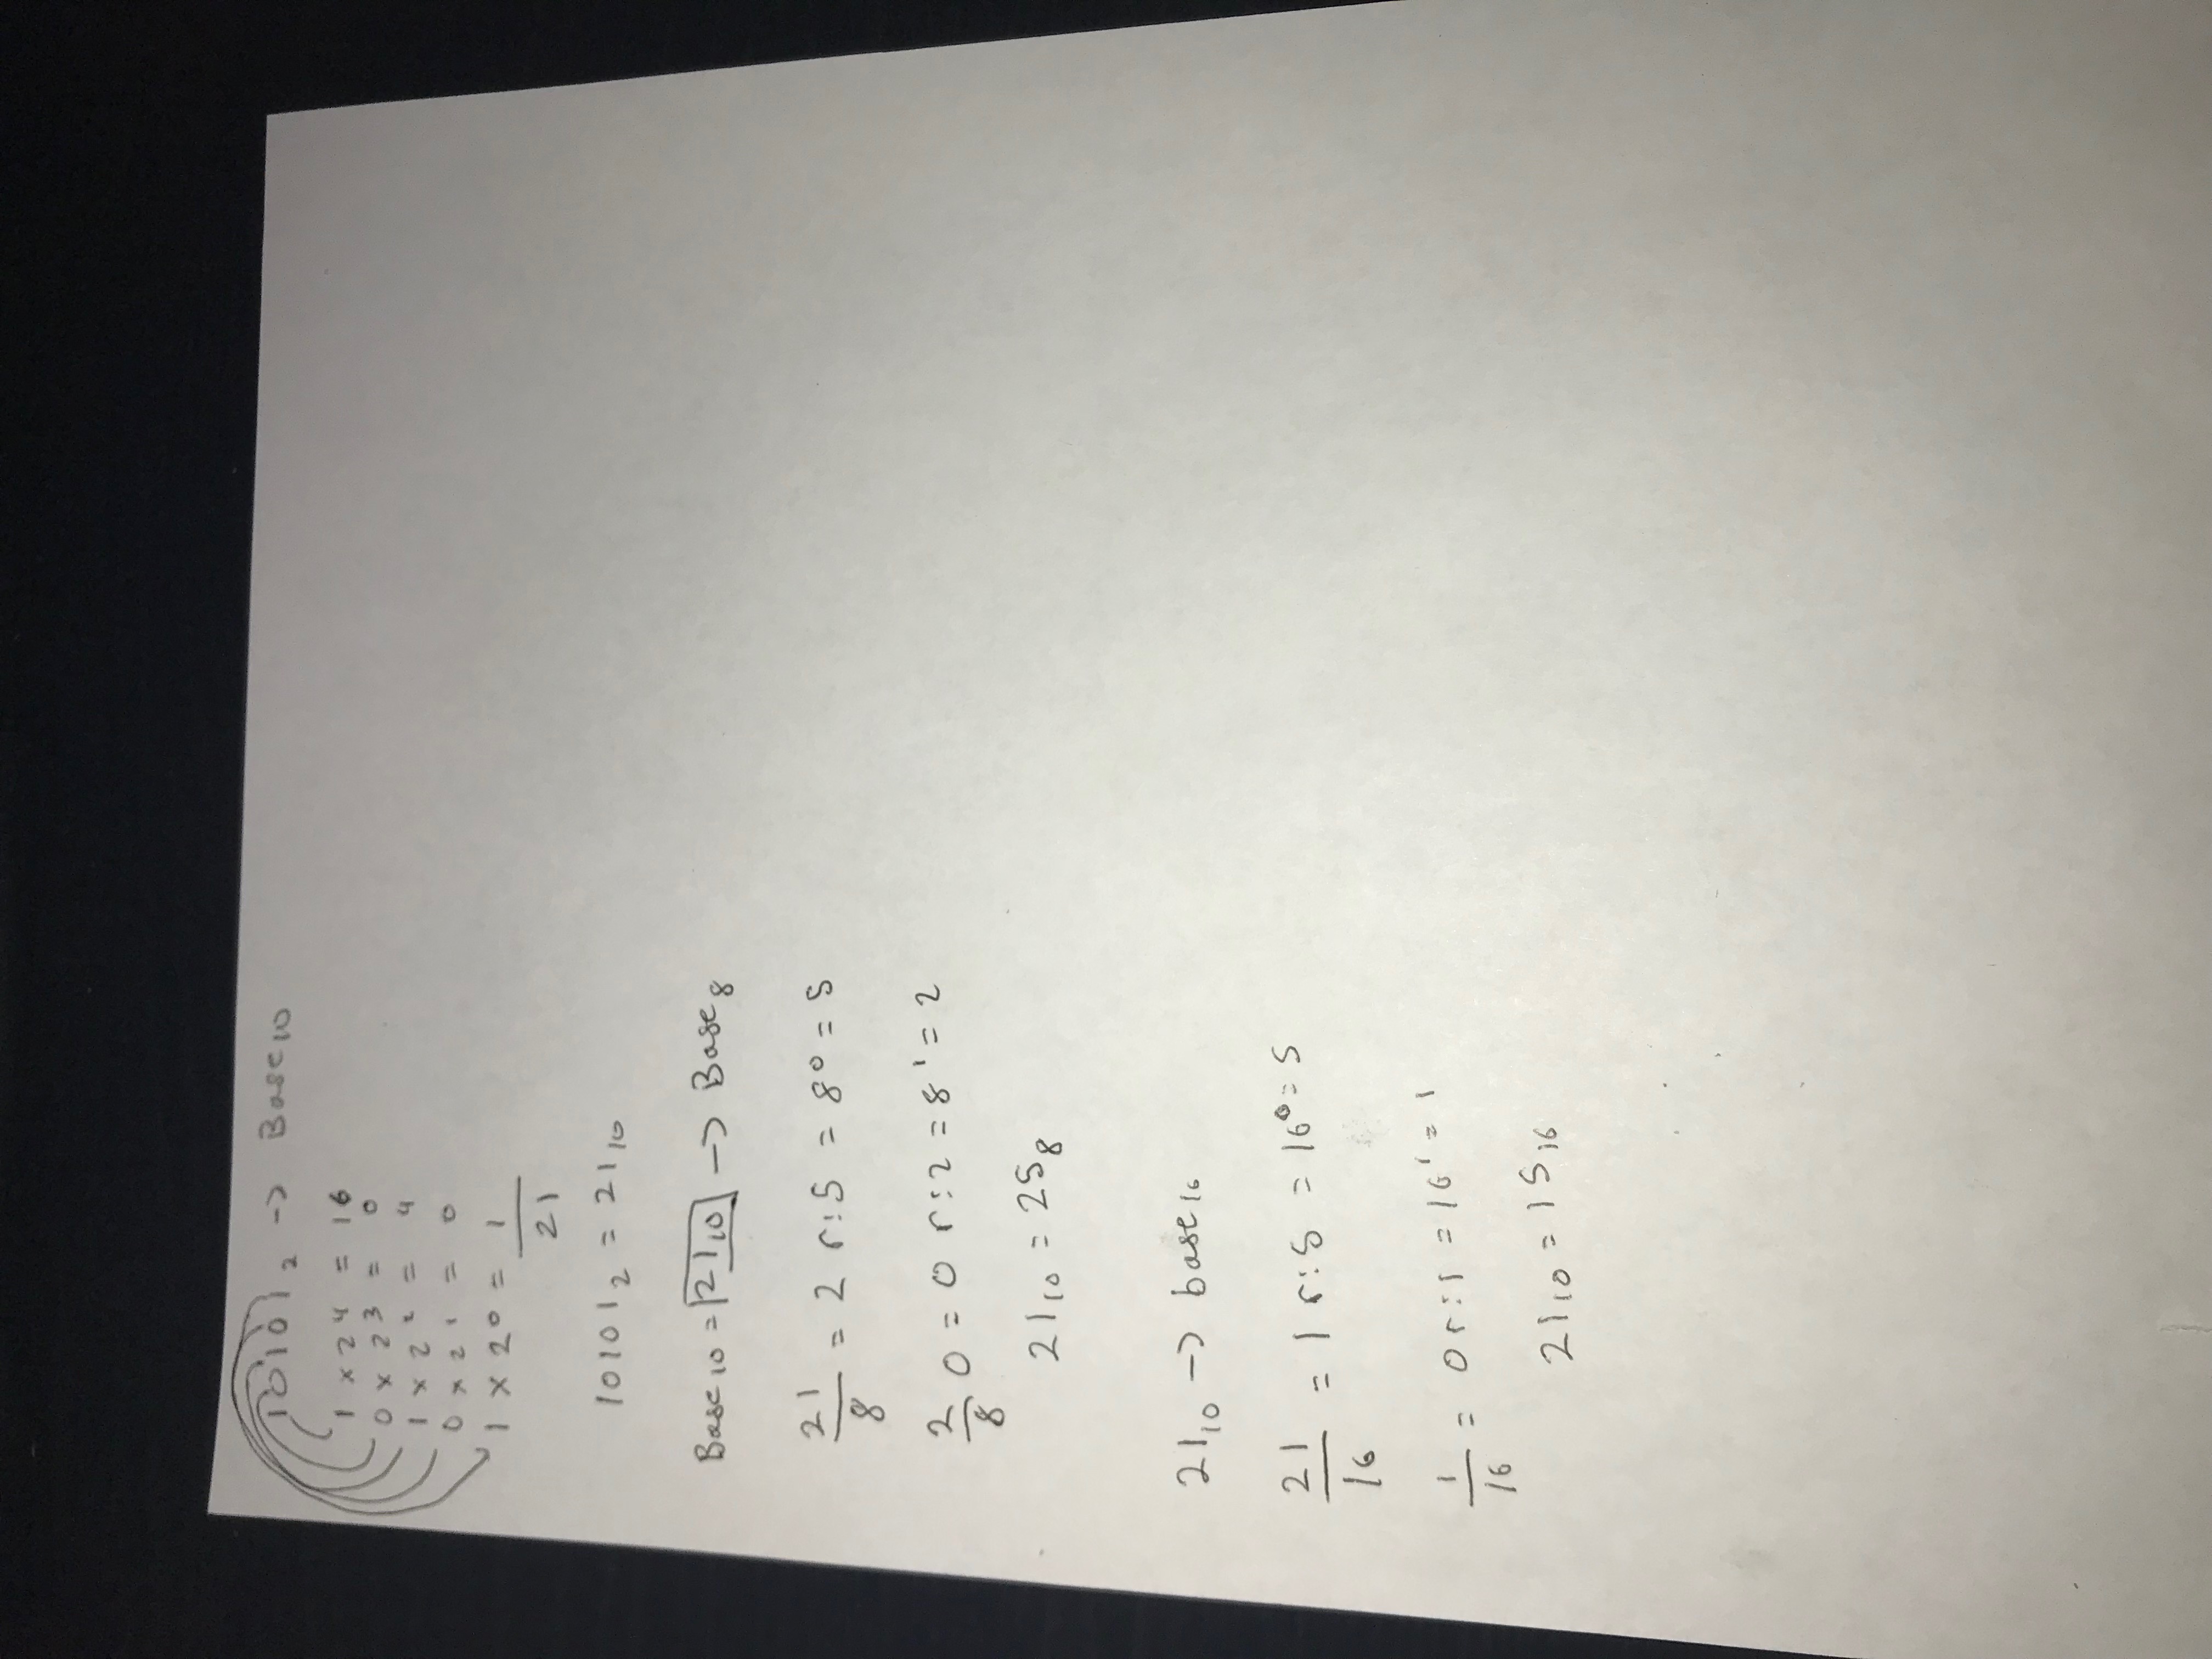 10101₂ -> Base₁₀
1 × 2⁴ = 16
0 × 2³ = 0
1 × 2² = 4
0 × 2¹ = 0
1 × 2⁰ = 1
21
10101₂ = 21₁₀
Base₁₀ = 21₁₀ -> Base₈
21/8 = 2 r:5 = 8⁰ = 5
2/8 0 = 0 r:2 = 8¹ = 2
21₁₀ = 25₈
21₁₀ -> base₁₆
21/16 = 1 r:5 = 16⁰ = 5
1/16 = 0 r:1 = 16¹ = 1
21₁₀ = 15₁₆